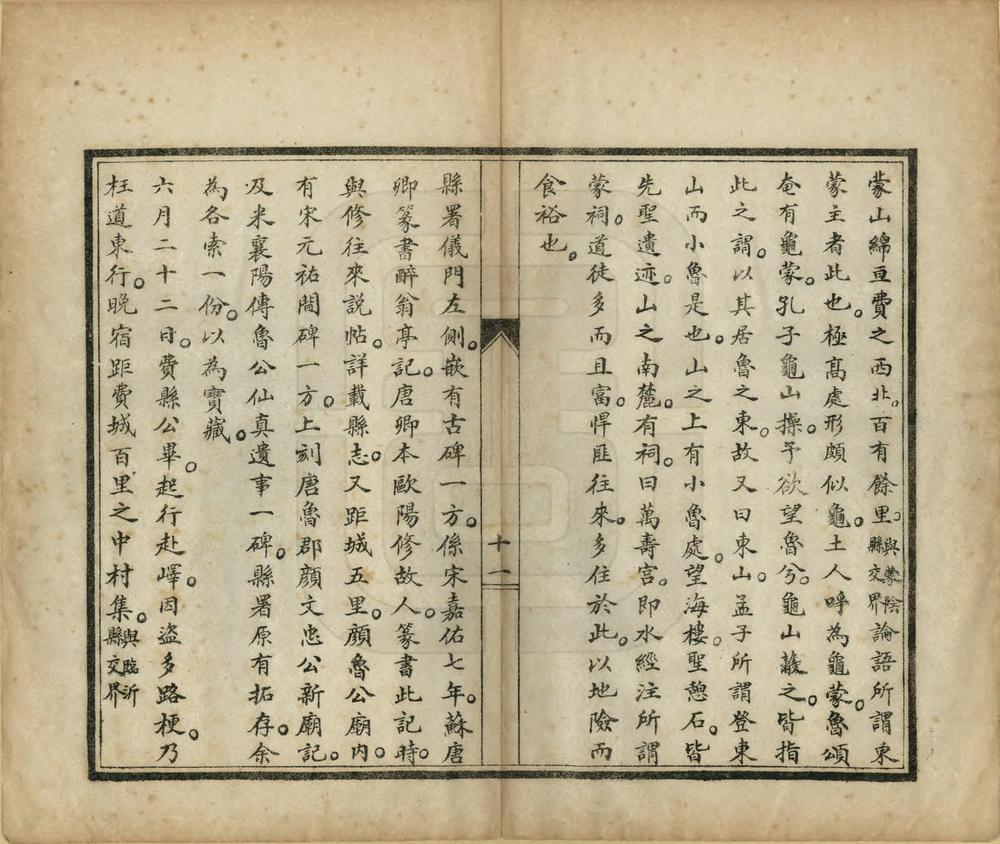 蒙山綿亘費之西北。百有餘里。與蒙陰縣交界論語所謂東
蒙主者此也。極高處形頗似龜。土人呼為龜蒙。魯頌
奄有龜蒙。孔子龜山操。予欲望魯兮。龜山蔽之。皆指
此之謂。以其居魯之東。故又曰東山。孟子所謂登東
山而小魯是也。山之上有小魯處。望海樓。聖憩石。皆
先聖遺迹。山之南麓。有祠曰萬壽宮。即水經注所謂
蒙祠。道徒多而且富。悍匪往來。多住於此。以地險而
食裕也。
十一
縣署儀門左側。嵌有古碑一方。係宋嘉佑七年。蘇唐
卿篆書醉翁亭記。唐卿本歐陽修故人。篆書此記時。
與修往來說帖。詳載縣志。又距城五里。顏魯公廟內。
有宋元祐間碑一方。上刻唐魯郡顏文忠公新廟記。
及米襄陽傳魯公仙真遺事一碑。縣署原有拓存。余
為各索一份。以為寶藏。
六月二十二日。費縣公畢。起行赴嶧。因盜多路梗。乃
枉道東行。晚宿距費城百里之中村集。與臨沂縣交界